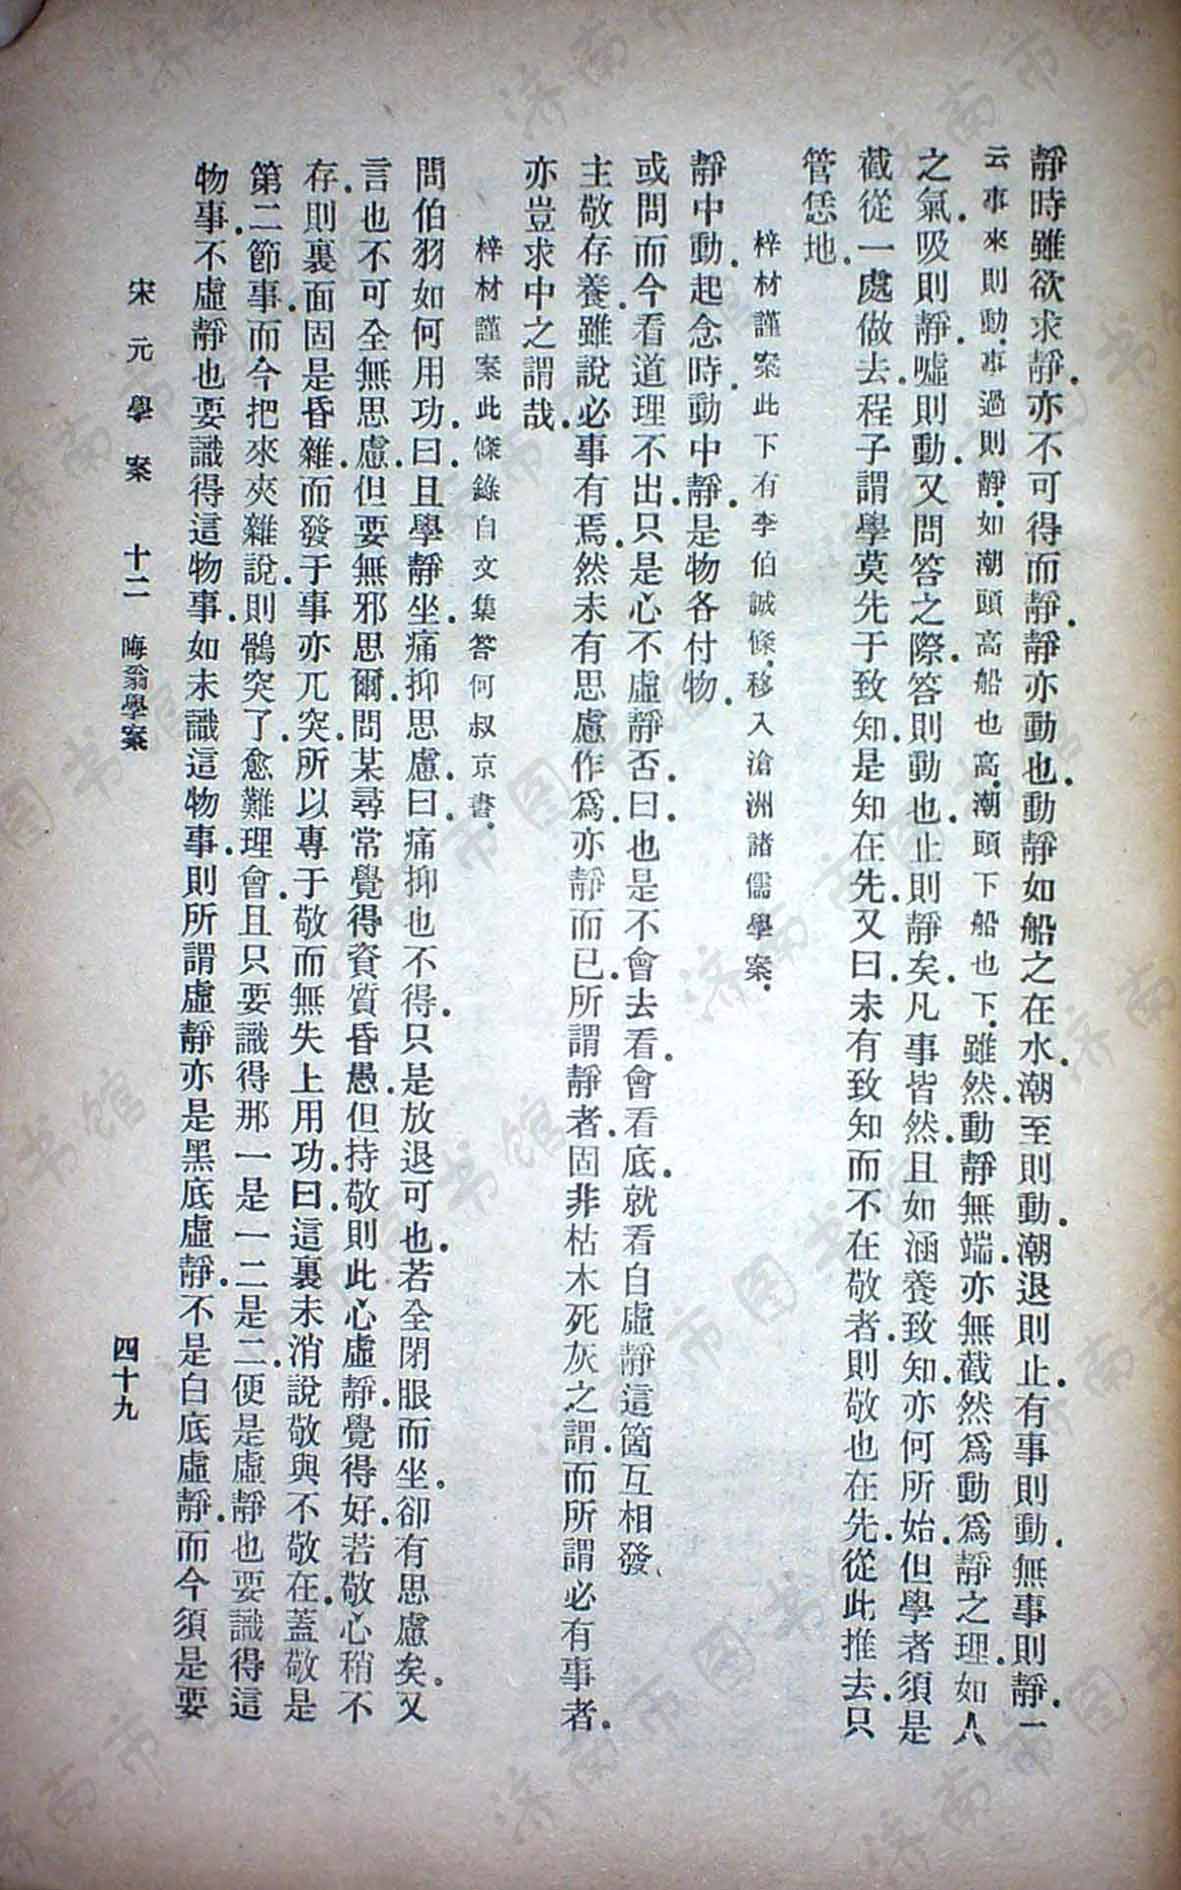 靜時雖欲求靜.亦不可得而靜.靜亦動也.動靜如船之在水.潮至則動.潮退則止.有事則動.無事則靜.一
云事來則動.事過則靜.如潮頭高船也高.潮頭下船也下.雖然.動靜無端.亦無截然爲動爲靜之理.如人
之氣.吸則靜.噓則動.又問答之際.答則動也.止則靜矣.凡事皆然.且如涵養致知.亦何所始.但學者須是
截從一處做去.程子謂學莫先于致知.是知在先.又曰.未有致知而不在敬者.則敬也在先.從此推去.只
管恁地.
梓材謹案此下有李伯誠條.移入滄洲諸儒學案.
靜中動.起念時.動中靜.是物各付物.
或問而今看道理不出.只是心不虛靜否.曰.也是不曾去看.會看底.就看自虛靜.這箇互相發.
主敬存養.雖說必事有焉.然未有思慮作爲.亦靜而已.所謂靜者.固非枯木死灰之謂.而所謂必有事者.
亦豈求中之謂哉.
梓材謹案此條錄自文集答何叔京書.
問伯羽如何用功.曰.且學靜坐.痛抑思慮.曰.痛抑也不得.只是放退可也.若全閉眼而坐.卻有思慮矣.又
言也不可全無思慮.但要無邪思爾.問某尋常覺得資質昏愚.但持敬則此心虛靜.覺得好.若敬心稍不
存.則裏面固是昏雜.而發于事亦兀突.所以專于敬而無失上用功.曰.這裏未消說敬與不敬在.蓋敬是
第二節事.而今把來夾雜說.則鶻突了.愈難理會.且只要識得那一是一.二是二.便是虛靜.也要識得這
物事.不虛靜.也要識得這物事.如未識這物事.則所謂虛靜.亦是黑底虛靜.不是白底虛靜.而今須是要
宋元學案 十二 晦翁學案 四十九
济南市图书馆